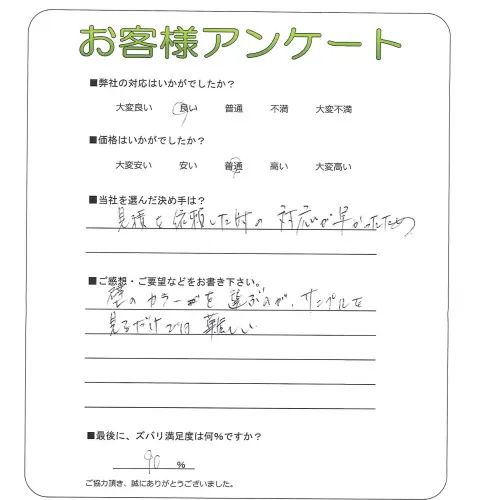 お客様アンケート
■弊社の対応はいかがでしたか?
大変良い 良い 普通 不満 大変不満
■価格はいかがでしたか?
大変安い 安い 普通 高い 大変高い
■当社を選んだ決め手は?
見積を依頼した時の対応が早かったため
■ご感想・ご要望などをお書き下さい。
壁のカラーを選ぶのが、サンプルを
見るだけでは難しい
■最後に、ズバリ満足度は何%ですか?
90 %
ご協力頂き、誠にありがとうございました。